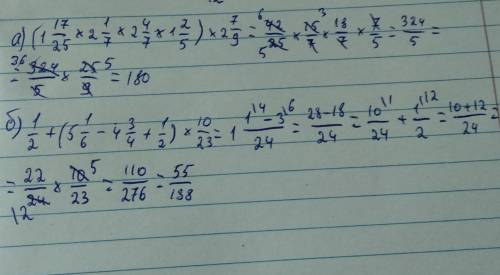 а) (1 17/25 × 2 1/7 × 2 4/7 × 1 2/5) × 2 7/9 = 42/25 × 15/7 × 18/7 × 7/5 = 324/5 =
= 324/5 × 25/9 = 180
б) 1/2 + (5 1/6 - 4 3/4 + 1/2) × 10/23 = 1 1/14 - 3/6 / 24 = 28-18/24 = 10/24 + 1/2 = 10+12/24 =
= 22/24 × 10/23 = 110/276 = 55/138